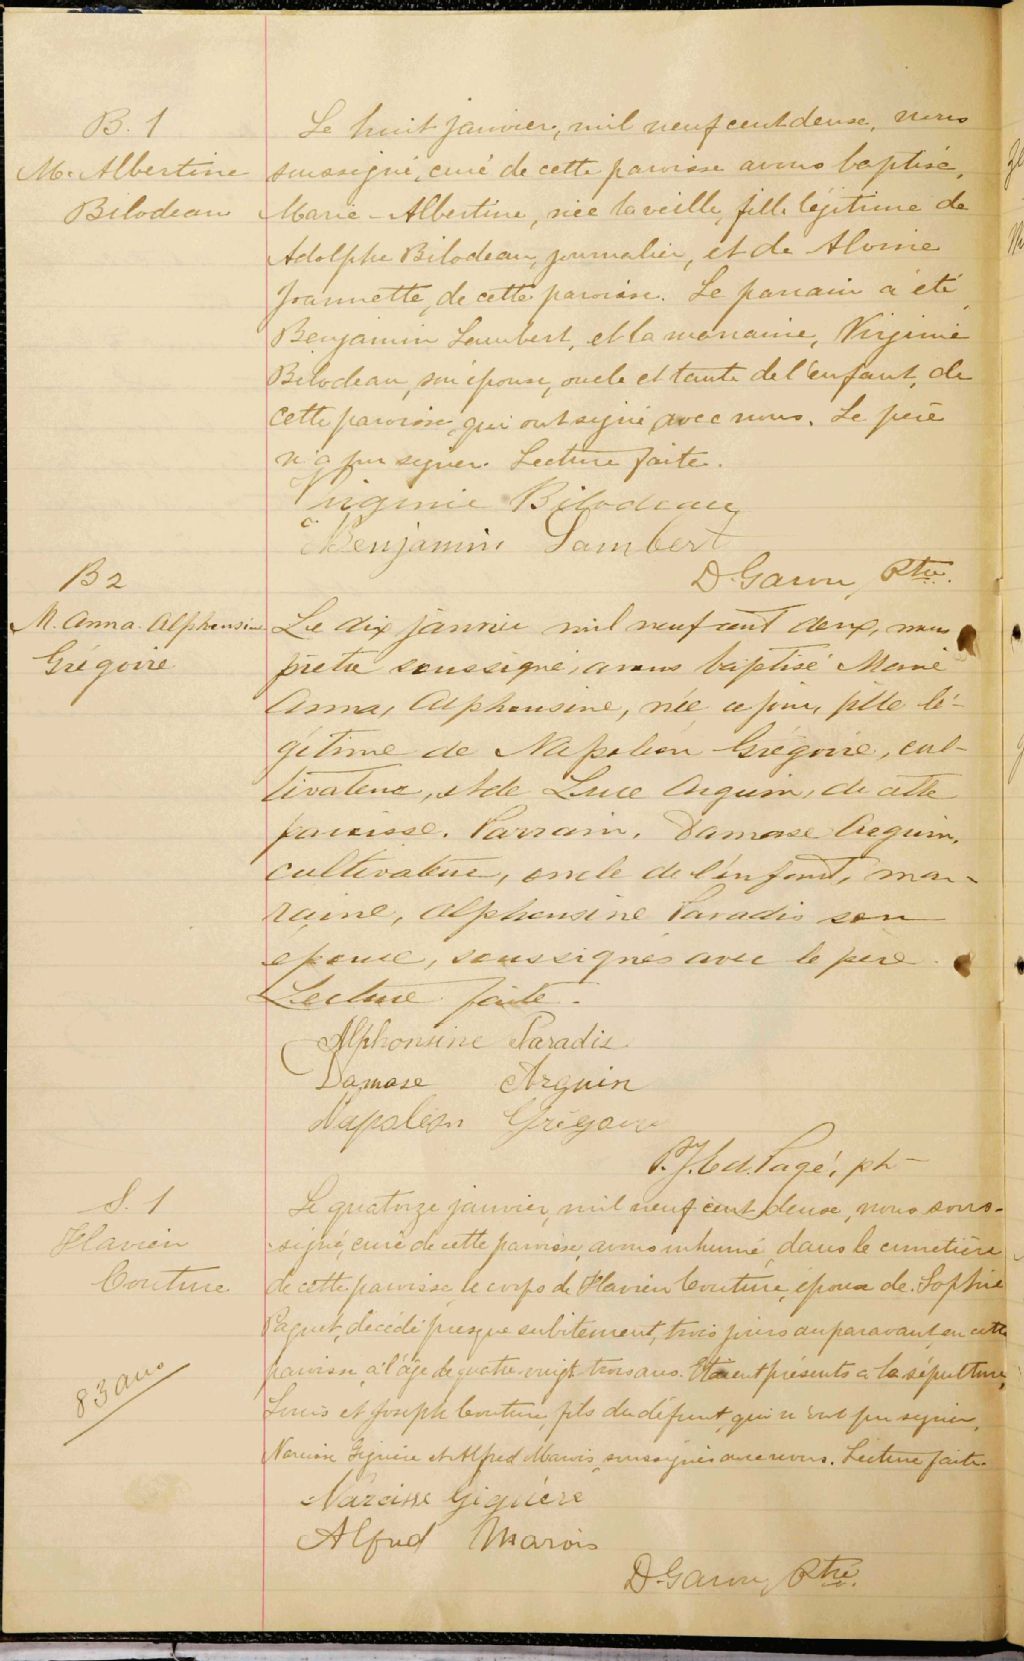 B. 1
M. Albertine
Bilodeau
Le huit janvier, mil neuf cent deux, nous
soussigné, curé de cette paroisse avons baptisé,
Marie-Albertine, née la veille, fille légitime de
Adolphe Bilodeau, journalier, et de
Joannette, de cette paroisse. Le parrain a été
Benjamin Lambert, et la marraine, Virginie
Bilodeau, son épouse, oncle et tante de l'enfant, de
cette paroisse, qui ont signé avec nous. Le père
n'a pu signer. Lecture faite.
Virginie Bilodeau
Benjamin Lambert
D. Garon, Ptre.
B 2
M. Anna. Alphonsine
Grégoire
Le dix janvier mil neuf cent deux, nous
prêtre soussigné, avons baptisé Marie
Anna, Alphonsine, née ce jour, fille lé-
gitime de Napoléon Grégoire, cul-
tivateur, et de Luce Arguin, de cette
paroisse. Parrain, Damase Arguin,
cultivateur, oncle de l'enfant, mar-
raine, Alphonsine Paradis son
epouse, soussignés avec le pere.
Lecture faite.
Alphonsine Paradis
Damase Arguin
Napoléon Grégoire
Pagé, ptr
S. 1
Flavien
Couture
83 ans
Le quatorze janvier, mil neuf cent deux, nous sous-
signé, curé de cette paroisse, avons inhumé, dans le cimetière
de cette paroisse, le corps de Flavien Couture, époux de Sophie
Paquet, décédé presque subitement, trois jours auparavant, en cette
paroisse à l'âge de quatre-vingt-trois ans. Etaient présents a la sépulture,
Louis et Joseph Couture, fils du défunt, qui n'ont pu signer,
Narcisse Giguère et Alfred Marois, soussignés avec nous. Lecture faite.
Narcisse Giguère
Alfred Marois
D. Garon, Ptre.